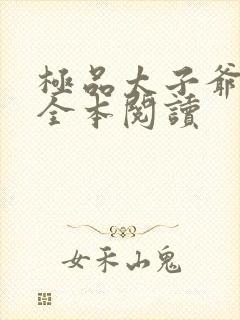 極品太子爺
全本閱讀
女禾山鬼